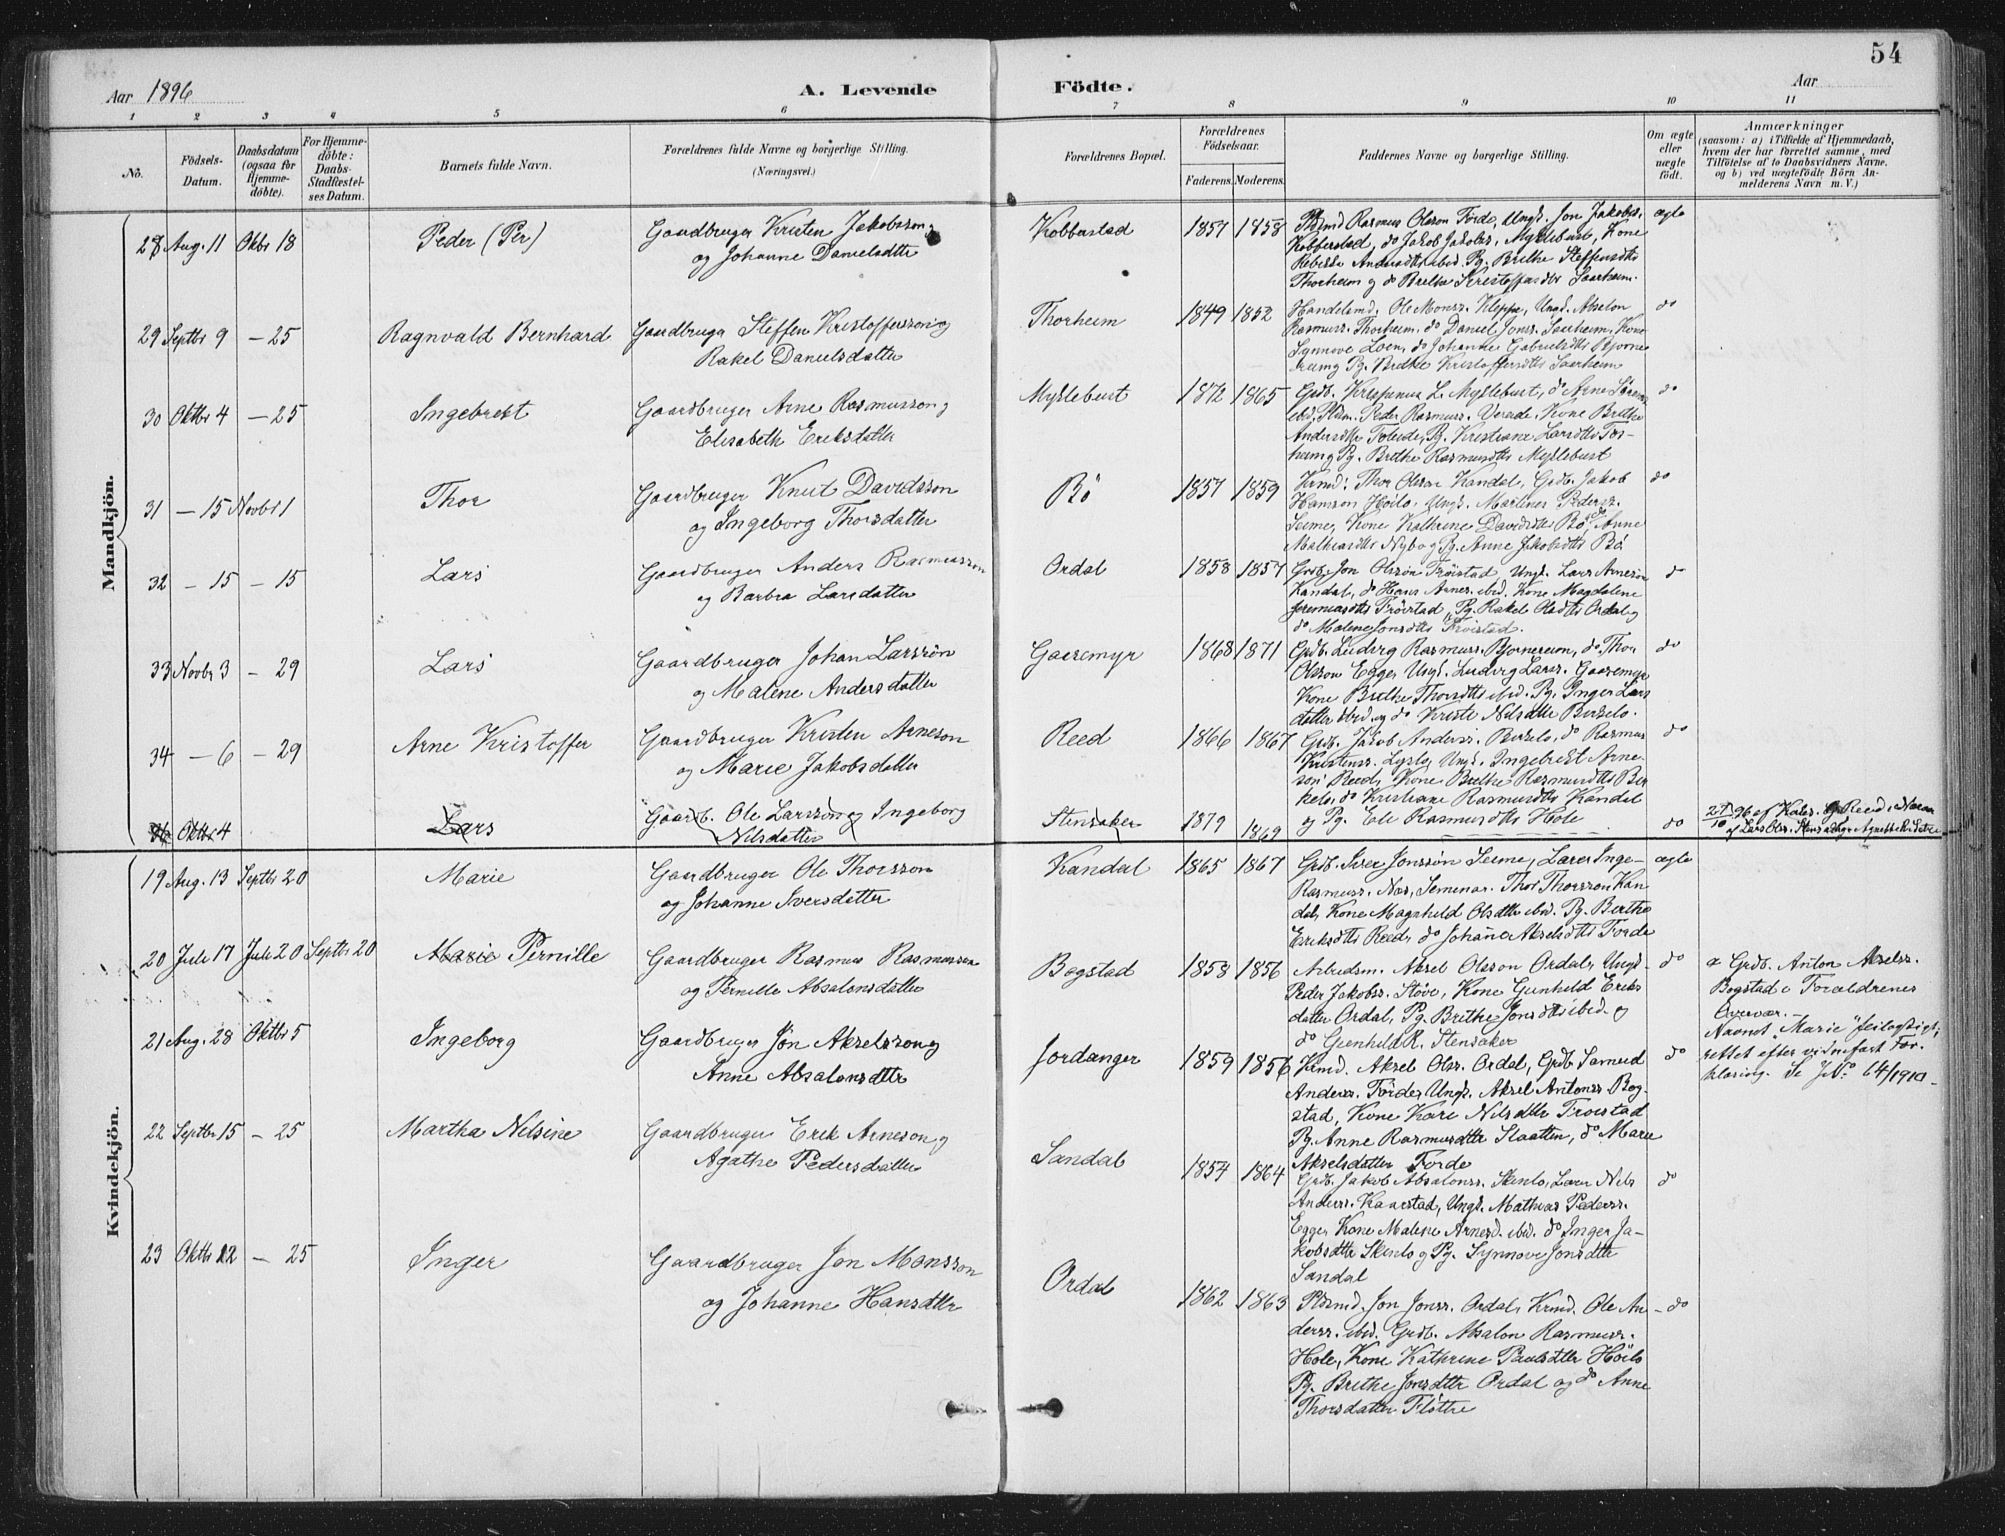 54
Aar 1896
A. Levende Födte.
Aar
1 2 3 4 5 6 7 8 9 10 11
No.
Födsels-Datum.
Daabsdatum (ogsaa for Hjemme-döbte).
For Hjemme-döbte: Daabs-Stadfæstel-ses Datum.
Barnets fulde Navn.
Forældrenes fulde Navne og borgerlige Stilling.
(Næringsvei.)
Forældrenes Bopæl.
Forældrenes Födselsaar.
Faderens. Moderens.
Faddernes Navne og borgerlige Stilling.
Om ægte eller uægte födt.
Anmærkninger
(saasom: a) i Tilfælde af Hjemmedaab,
hvem der har forrettet samme, med
Tilföielse af to Daabsvidners Navne,
og b) ved uægtefödte Börn An-
melderens Navn m. V.)
Mandkjön.
28 Aug. 11 Oktbr 18 Peder (Per) Gaardbruger Kristen Jakobsson
og Johanne Danielsdatter
Kobberstad 1857 1858
Rasmus Olsson Förde, Ungk. Jon Jakobss.
Kobberstad, do Jakob Jakobss. Myklebust, Kone
Thorheim og do Brethe Kristoffersdtr Saarheim.
ægte
29 Septbr 9 – 25 Ragnvald Bernhard Gaardbruger Steffen Kristoffersson og
Rakel Danielsdatter
Thorheim 1849 1852
Handelsmd. Ole Monss. Kleppe, Ungk. Absalon
Rasmuss. Thorheim, do Daniel Jonss. Saarheim, Kone
do
30 Oktbr 4 – 25 Ingebrekt Gaardbruger Arne Rasmusson og
Elisabeth Eriksdatter
Myklebust 1872 1865
ibid. Peder Rasmuss. Kone Brithe
Pg. Brethe Rasmusdtr Myklebust
do
31 – 15 Novbr 1 Thor Gaardbruger Knut Davidsson
og Ingeborg Thorsdatter
Bö 1857 1859
Thor Olsson Kandal, Grdb. Jakob
Hansson Höilo, Ungk. Martines Pederss.
Seime, Kone Kathrine Davidsdtr Bö, do Anne
Mathiasdtr Nybö og Pg. Anne Jakobsdtr Bö
do
32 – 15 – 15 Lars Gaardbruger Anders Rasmusson
og Barbra Larsdatter
Ordal 1858 1857
Grdb. Jon Olsson Fröistad, Ungk. Lars Arneson
Kandal, do Hans Arnes. ibid. Kone Magdalene
Jeremiasdtr Fröistad, Pg. Rakel Olsdtr Ordal og
do Malene Jonsdtr Fröistad.
do
33 Novbr 3 – 29 Lars Gaardbruger Johan Larsson
og Malene Andersdatter
Gaasemyr 1868 1871
Grdb. Ludvig Rasmuss. Bjornereim, do Thor
Olsson Egge, Ungk. Ludvig Larss. Gaasemyr
Kone Brithe Thorsdtr ibid. Pg. Inger Lars
datter ibid og do Kirsti Nilsdtr Birkelo.
do
34 – 6 – 29 Arne Kristoffer Gaardbruger Kristen Arneson
og Marie Jakobsdatter
Reed 1866 1867
Grdb. Jakob Anderss. Birkelo, do Rasmus
Kristenss. Lyslo, Ungk. Ingebrekt Arne-
son Reed, Kone Brethe Rasmusdtr Bir
kelo, do Kristiane Rasmusdtr Kandal
og Pg. Eli Rasmusdtr Hole
do
Oktbr 4 Lars Gaardb. Ole Larsson og Ingeborg
Nilsdatter
Stensaker 1879 1869
do
Kvindekjön.
19 Aug. 13 Septbr 20 Marie Gaardbruger Ole Thorsson
og Johanne Iversdatter
Kandal 1865 1867
Grdb. Iver Jonssön Seime, Lærer Inge-
Rasmuss. Næs, Seminar. Thor Thorsson Kan
dal, Kone Magnhild Olsdtr ibid. Pg. Birthe
Eriksdtr Reed, do Johanne Akselsdtr Förde
ægte
20 Juli 17 Juli 20 Septbr 20 Marie Pernille Gaardbruger Rasmus Rasmusson
og Pernille Absalonsdatter
Bogstad 1858 1856
Arbeidsm. Aksel Olsson Ordal, Ungk.
Peder Jakobss. Støve, Kone Gunhild Eriks
datter Ordal, Pg. Brithe Jonsdtr ibid. og
do Gunhild R. Stensaker
do
a Grdb. Anton Akselss.
Bogstad i Forældrenes
Overvær. –
Navnet "Marie" feilagtigt,
rettet efter vidnefast For-
klaring. Se JNo. 64/1910 –
21 Aug. 28 Oktbr 5 Ingeborg Gaardbruger Jön Akselsson og
Anne Absalonsdtr
Jordanger 1859 1856
Krmd. Aksel Olss. Ordal, Grdb Samuel
Anderss. Förde, Ungk. Aksel Antonss Bog-
stad, Kone Kari Nilsdtr Froistad
Pg. Anne Rasmusdtr Slaatten, do Marie
Akselsdatter Förde
do
22 Septbr 15 – 25 Martha Nilsine Gaardbruger Erik Arneson og
Agathe Pedersdatter
Sandal 1854 1864
Grdb. Jakob Absalonss. Skinlo, Lærer Nils
Anderss. Kaarstad, Ungk. Mathias Pederss.
Egge, Kone Malene Arnesd. ibid. do Inger Ja-
kobsdtr Skinlo og Pg. Synnove Jonsdtr
Sandal
do
23 Oktbr 12 – 25 Inger Gaardbruger Jon Monsson
og Johanne Hansdtr
Ordal 1862 1863
Plsmd. Jon Jonss. Ordal, Krmd. Ole An-
derss. ibid. Grdb. Absalon Rasmuss.
Hole, Kone Kathrine Paulsdtr Höilo
Pg. Brethe Jonsdtr Ordal og do Anne
Thorsdatter Flöttre
do